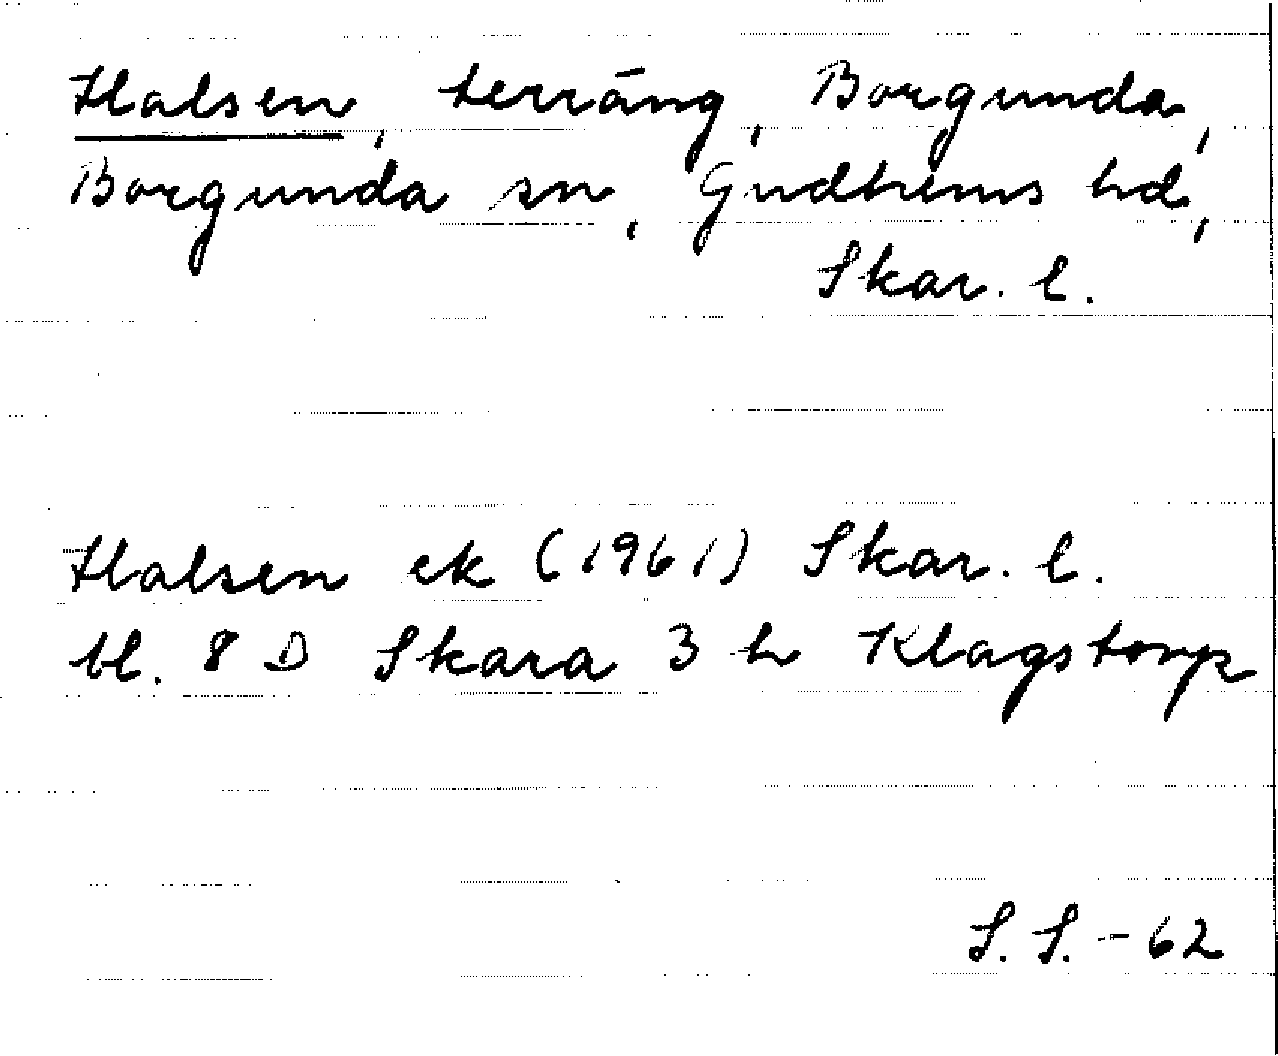 Halsen, terräng, Borgunda,
Borgunda sn, Gudhems hd,
Skar. l.
Halsen ek (1961) Skar. l.
bl. 8 D Skara 3 h Klagstorp
S. S. - 62